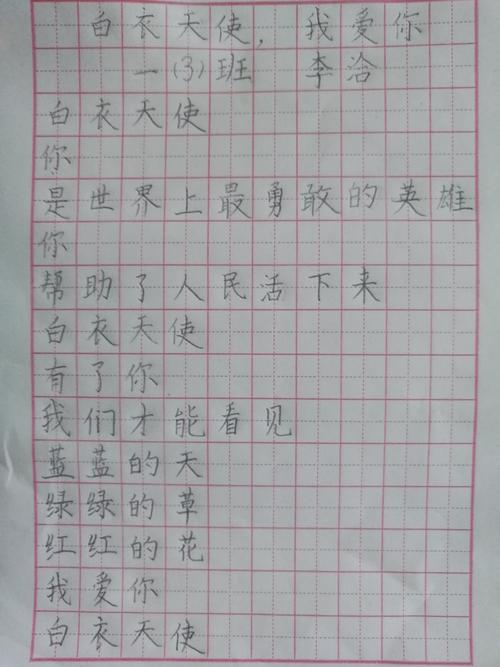 白衣天使，我爱你
一(3)班 李洽
白衣天使
你
是世界上最勇敢的英雄
你
帮助了人民活下来
白衣天使
有了你
我们才能看见
蓝蓝的天
绿绿的草
红红的花
我爱你
白衣天使